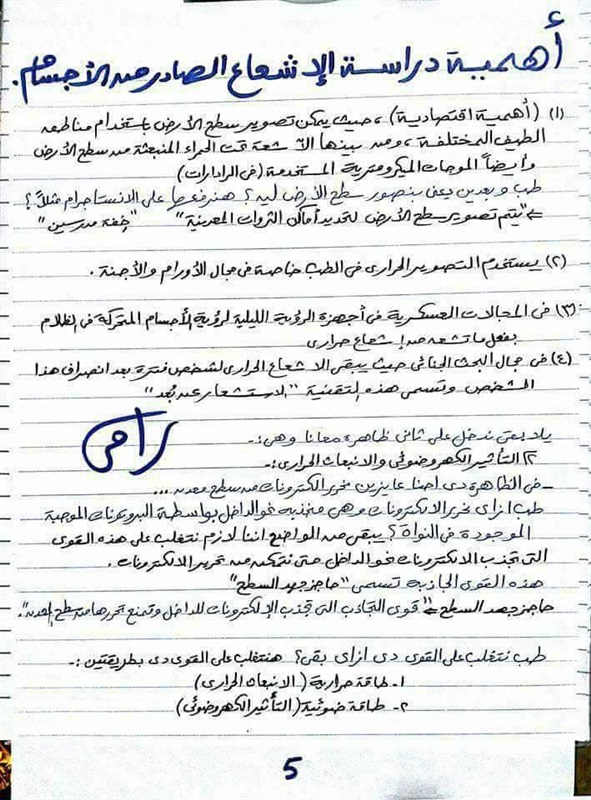 أهمية دراسة الإشعاع الصادر من الأجسام.
(١) (أهمية اقتصادية)، حيث يمكن تصوير سطح الأرض باستخدام مناطق
الطيف المختلفة، ومن بينها الأشعة تحت الحمراء المنبعثة من سطح الأرض
وأيضاً الموجات الميكرومترية المستخدمة (فى الرادارات)
طب وبعدين يعنى بنصور سطح الأرض ليه؟ هنرفعها على الانستاجرام مثلاً؟
⇐ "يتم تصوير سطح الأرض لتحديد أماكن الثروات المعدنية" "خفة مدرسين"
(٢) يستخدم التصوير الحرارى فى الطب خاصة فى مجال الأورام والأجنة.
(٣) فى المجالات العسكرية فى أجهزة الرؤية الليلية لرؤية الأجسام المتحركة فى الظلام
بفعل ما تشعه من إشعاع حرارى
(٤) فى مجال البحث الجنائى حيث يبقى الاشعاع الحرارى لشخص فترة بعد انصراف هذا
الشخص وتسمى هذه التقنية "الاستشعار عن بُعد"
يلا بقى ندخل على ثانى ظاهرة معانا وهى:-
٢) التأثير الكهروضوئى والانبعاث الحرارى:-
- فى الظاهرة دى احنا عايزين نحرر الكترونات من سطح معدن ...
طب ازاى نحرر الالكترونات وهى منجذبه نحو الداخل بواسطة البروتونات الموجبة
الموجودة فى النواة؟ يبقى من الواضح اننا لازم نتغلب على هذه القوى
التى تجذب الالكترونات نحو الداخل حتى نتمكن من تحرير الالكترونات.
هذه القوى الجاذبه تسمى "حاجز جهد السطح"
حاجز جهد السطح ⇐ "قوى التجاذب التى تجذب الإلكترونات للداخل وتمنع تحررها من سطح المعدن".
طب نتغلب على القوى دى ازاى بقى؟ هنتغلب على القوى دى بطريقتين:-
١- طاقة حرارية (الانبعاث الحرارى)
٢- طاقة ضوئية (التأثير الكهروضوئى)
5